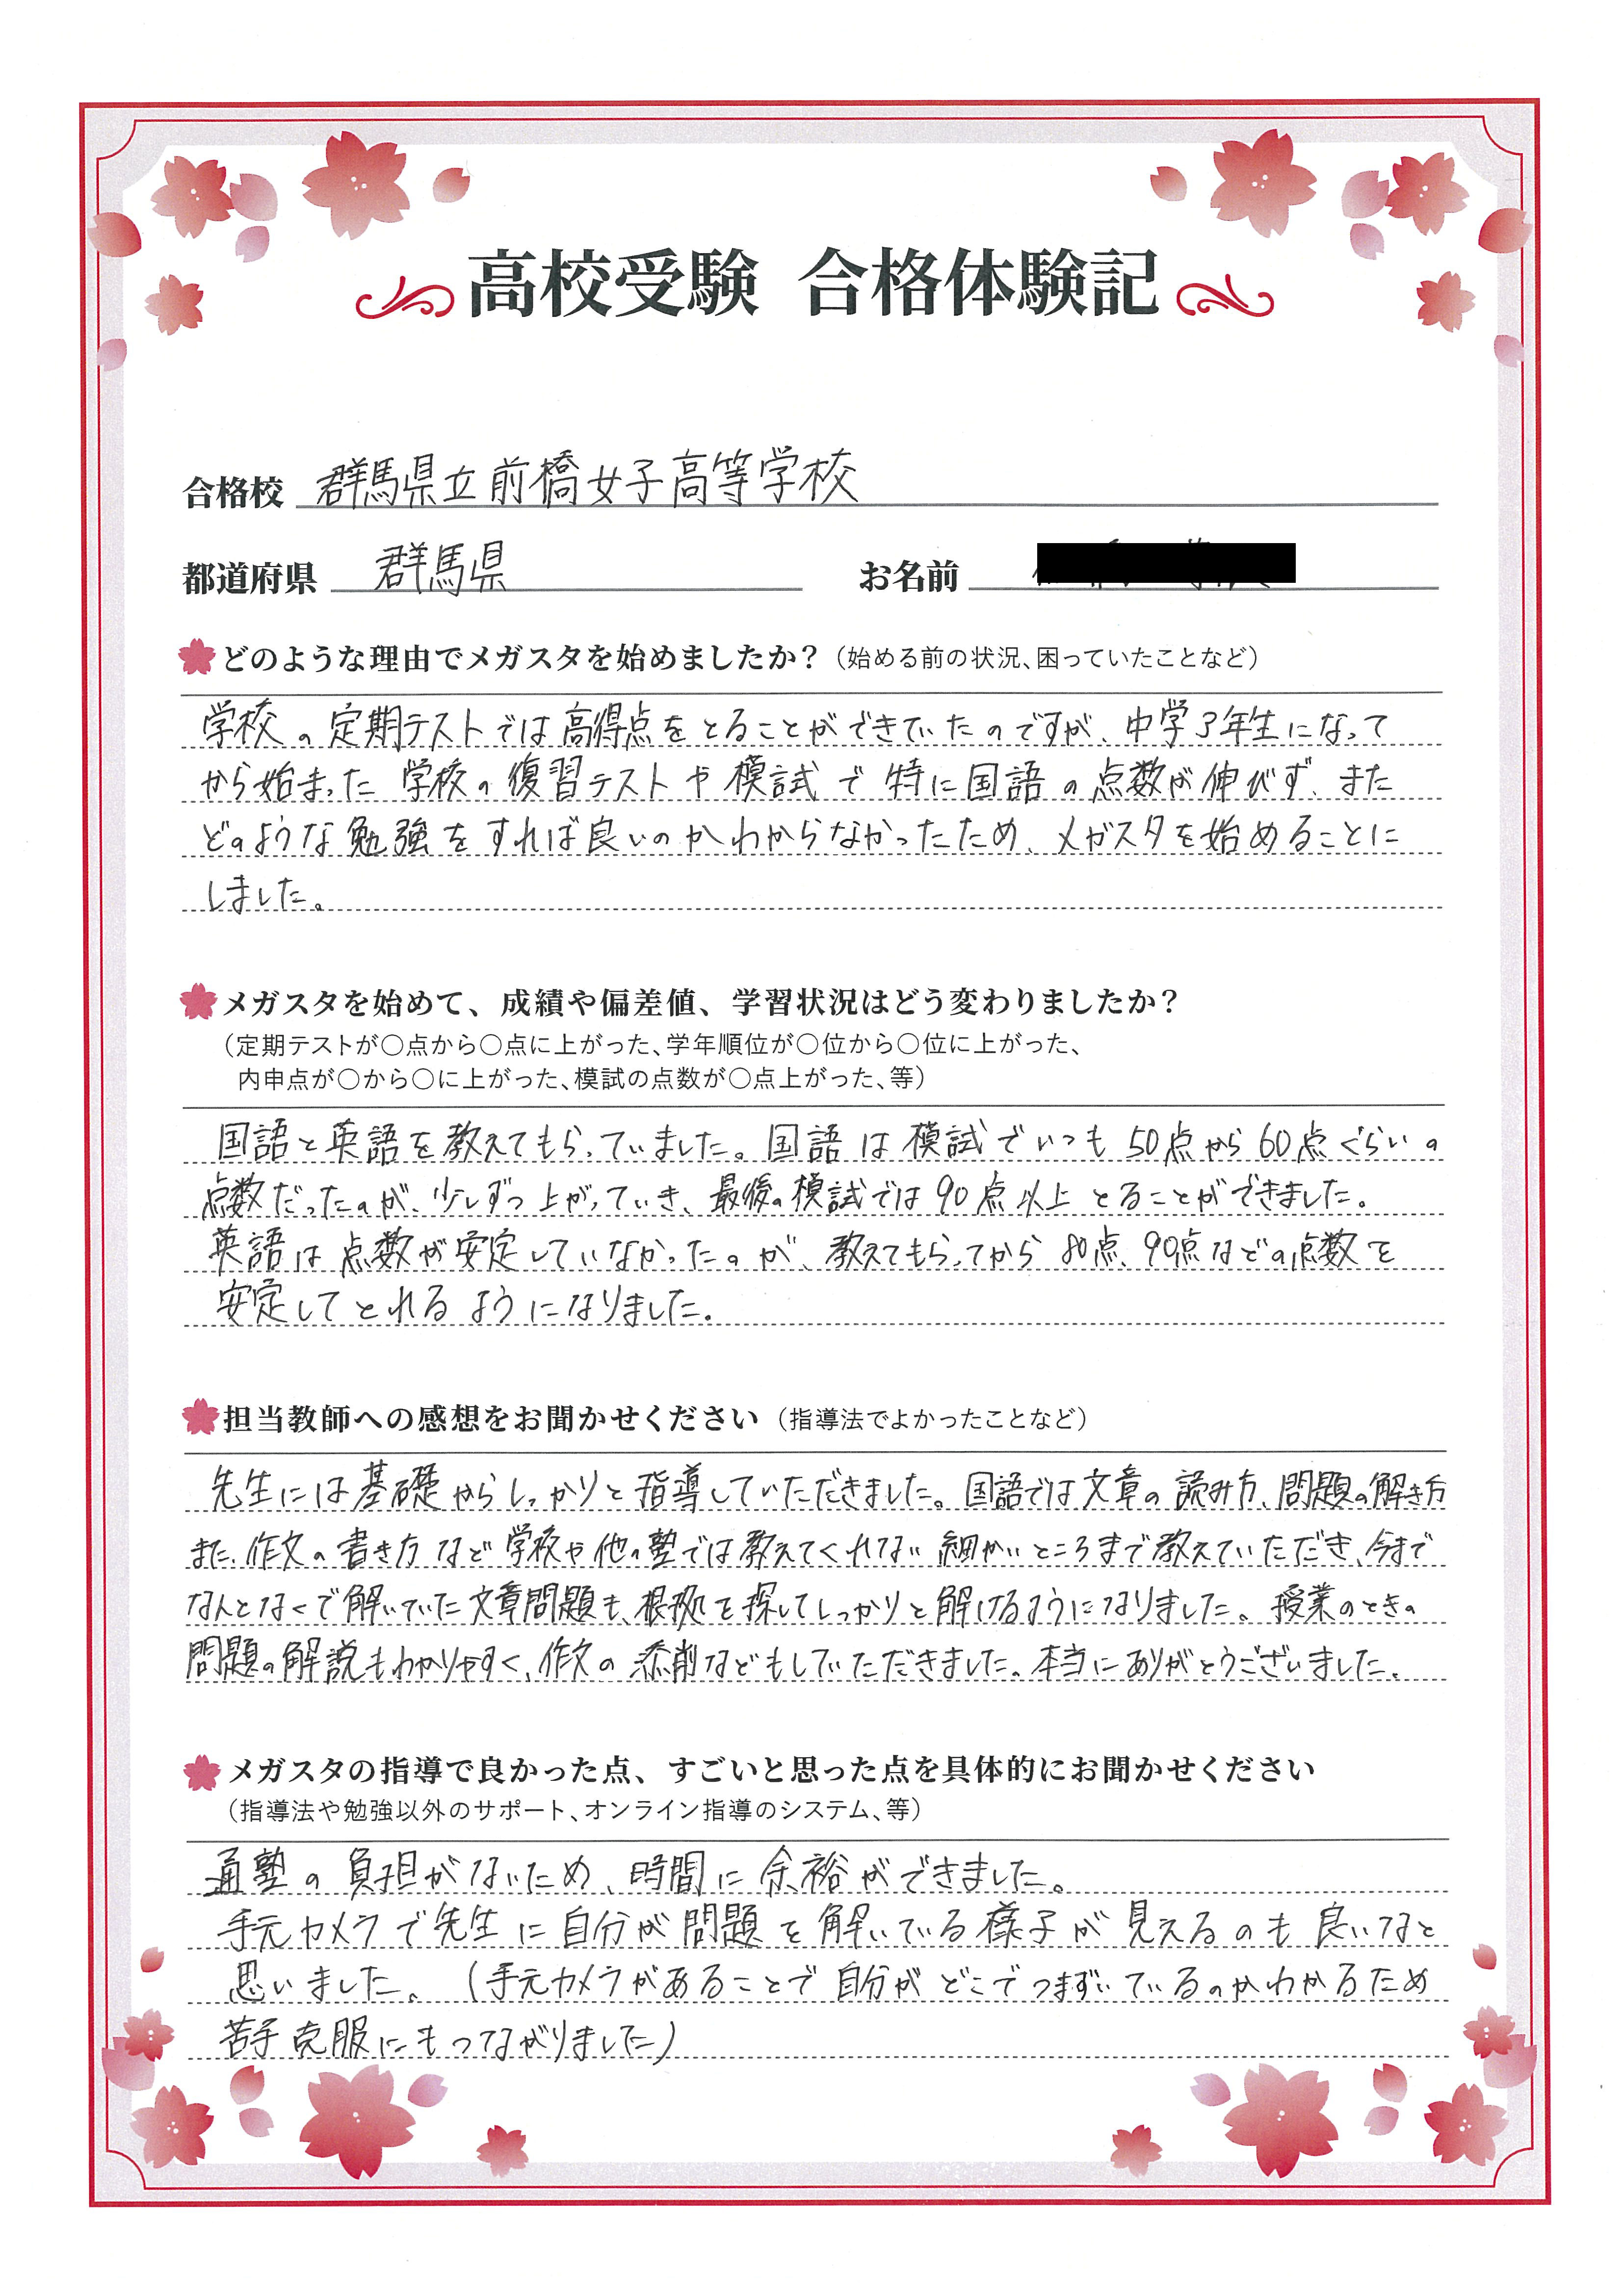 高校受験 合格体験記
合格校 群馬県立前橋女子高等学校
都道府県 群馬県 お名前
どのような理由でメガスタを始めましたか？（始める前の状況、困っていたことなど）
学校の定期テストでは高得点をとることができていたのですが、中学3年生になって
から始まった 学校の復習テストや模試で特に国語の点数が伸びず、また
どのような勉強をすれば良いのかわからなかったため、メガスタを始めることに
しました。
メガスタを始めて、成績や偏差値、学習状況はどう変わりましたか？
（定期テストが〇点から〇点に上がった、学年順位が〇位から〇位に上がった、
内申点が〇から〇に上がった、模試の点数が〇点上がった、等）
国語と英語を教えてもらっていました。国語は模試でいつも50点から60点ぐらいの
点数だったのが、少しずつ上がっていき、最後の模試では90点以上とることができました。
英語は点数が安定していなかったのが、教えてもらってから80点、90点などの点数を
安定してとれるようになりました。
担当教師への感想をお聞かせください（指導法でよかったことなど）
先生には基礎からしっかりと指導していただきました。国語では文章の読み方、問題の解き方
また、作文の書き方など学校や他の塾では教えてくれない細かいところまで教えていただき、今まで
なんとなくで解いていた文章問題も、根拠を探してしっかりと解けるようになりました。授業のときの
問題の解説もわかりやすく、作文の添削などもしていただきました。本当にありがとうございました。
メガスタの指導で良かった点、すごいと思った点を具体的にお聞かせください
（指導法や勉強以外のサポート、オンライン指導のシステム、等）
通塾の負担がないため、時間に余裕ができました。
手元カメラで先生に自分が問題を解いている様子が見えるのも良いなと
思いました。（手元カメラがあることで自分がどこでつまずいているのかわかるため
苦手克服にもつながりました）